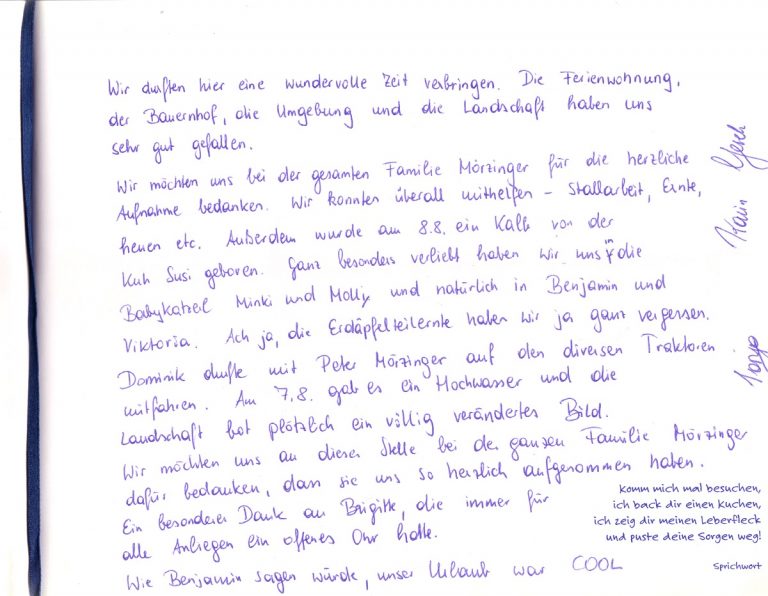 Wir durften hier eine wundervolle Zeit verbringen. Die Ferienwohnung,
der Bauernhof, die Umgebung und die Landschaft haben uns
sehr gut gefallen.
Wir möchten uns bei der gesamten Familie Mörzinger für die herzliche
Aufnahme bedanken. Wir konnten überall mithelfen - Stallarbeit, Ernte,
heuen etc. Außerdem wurde am 8.8. ein Kalb von der
Kuh Susi geboren. Ganz besonders verliebt haben wir uns in die
Babykatzerl Minki und Molly und natürlich in Benjamin und
Viktoria. Ach ja, die Erdäpfelteilernte haben wir ja ganz vergessen.
Dominik durfte mit Peter Mörzinger auf den diversen Traktoren
mitfahren. Am 7.8. gab es ein Hochwasser und die
Landschaft bot plötzlich ein völlig verändertes Bild.
Wir möchten uns an dieser Stelle bei der ganzen Familie Mörzinger
dafür bedanken, dass sie uns so herzlich aufgenommen haben.
Ein besonderer Dank an Brigitte, die immer für
alle Anliegen ein offenes Ohr hatte.
Wie Benjamin sagen würde, unser Urlaub war COOL
Karin
komm mich mal besuchen,
ich back dir einen Kuchen,
ich zeig dir meinen Leberfleck
und puste deine Sorgen weg!
Sprichwort